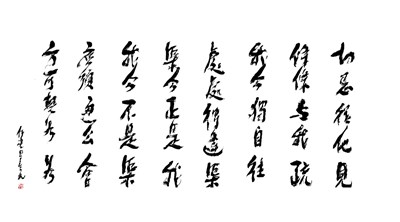 切忌從他覓
與我疏
我今獨自往
處處得逢渠
渠今正是我
我今不是渠
應須 么會
方可契如如